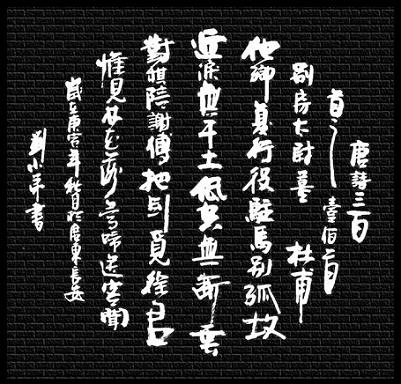 唐詩三百
首之 壹佰首
别房太尉墓 杜甫
他鄉復行役駐馬别孤坟
近淚無干土低空無斷雲
對棋陪謝傅把劍覓徐君
惟見林花落鶯啼送客聞
歲在庚寅年秋月於廣東長安
劉小平書